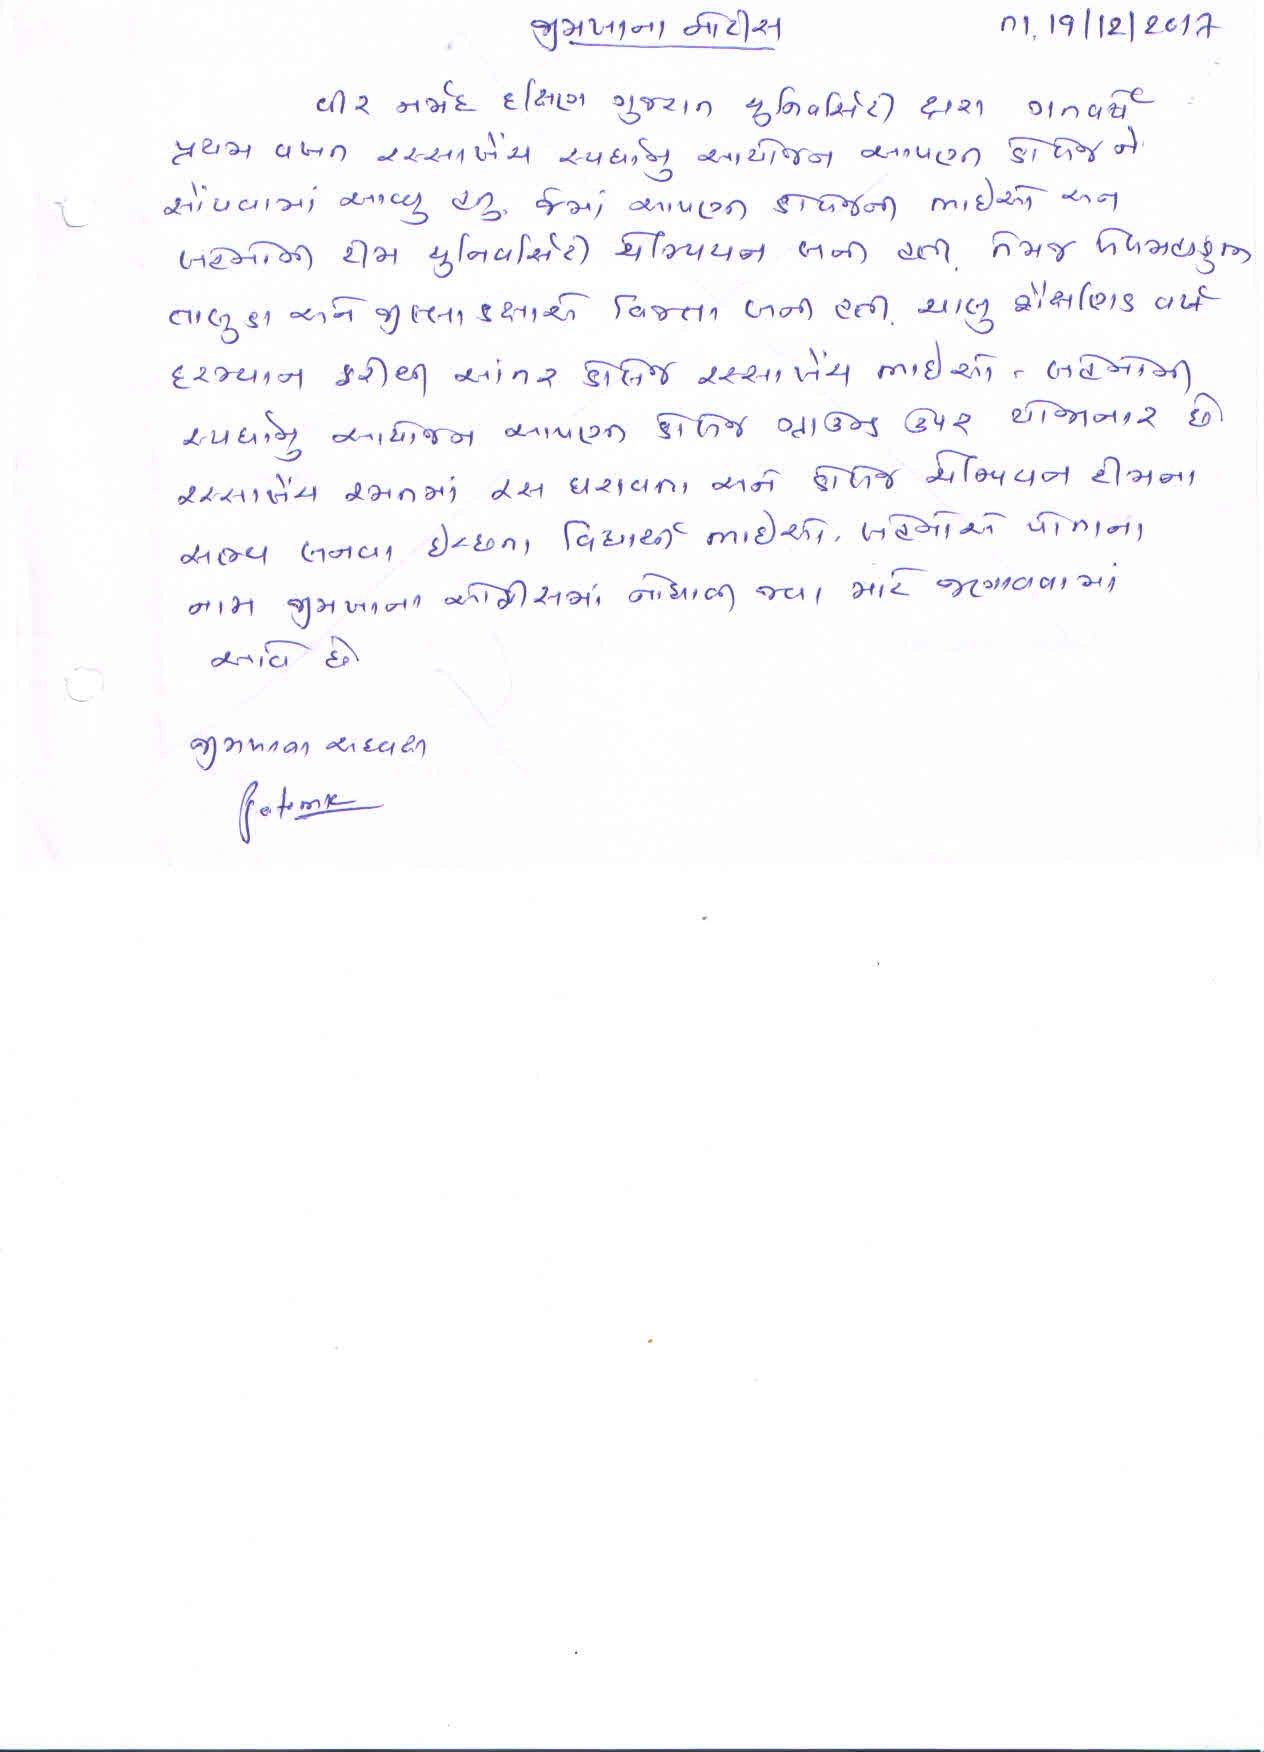 જીમખાના નોટીસ તા. 19/12/2017
વીર નર્મદ દક્ષિણ ગુજરાત યુનિવર્સિટી દ્વારા ગતવર્ષે
પ્રથમ વખત રસ્સાખેંચ સ્પર્ધાનુ આયોજન આપણી કોલેજને
સોંપવામાં આવ્યુ હતુ. જેમાં આપણી કોલેજની ભાઇઓ અને
બહેનોની ટીમ યુનિવર્સિટી ચેમ્પિયન બની હતી. તેમજ ખેલમહાકુંભ
તાલુકા અને જીલ્લા કક્ષાએ વિજેતા બની હતી. ચાલુ શૈક્ષણિક વર્ષ
દરમ્યાન ફરીથી આંતર કોલેજ રસ્સાખેંચ ભાઇઓ - બહેનોની
સ્પર્ધાનુ આયોજન આપણી કોલેજ ગ્રાઉન્ડ ઉપર યોજાનાર છે
રસ્સાખેંચ રમતમાં રસ ધરાવતા અને કોલેજ ચેમ્પિયન ટીમના
સભ્ય બનવા ઇચ્છતા વિદ્યાર્થી ભાઇઓ. બહેનોએ પોતાના
નામ જીમખાના ઓફીસમાં નોંધાવી જવા માટે જણાવવામાં
આવે છે
જીમખાના અધ્યક્ષ